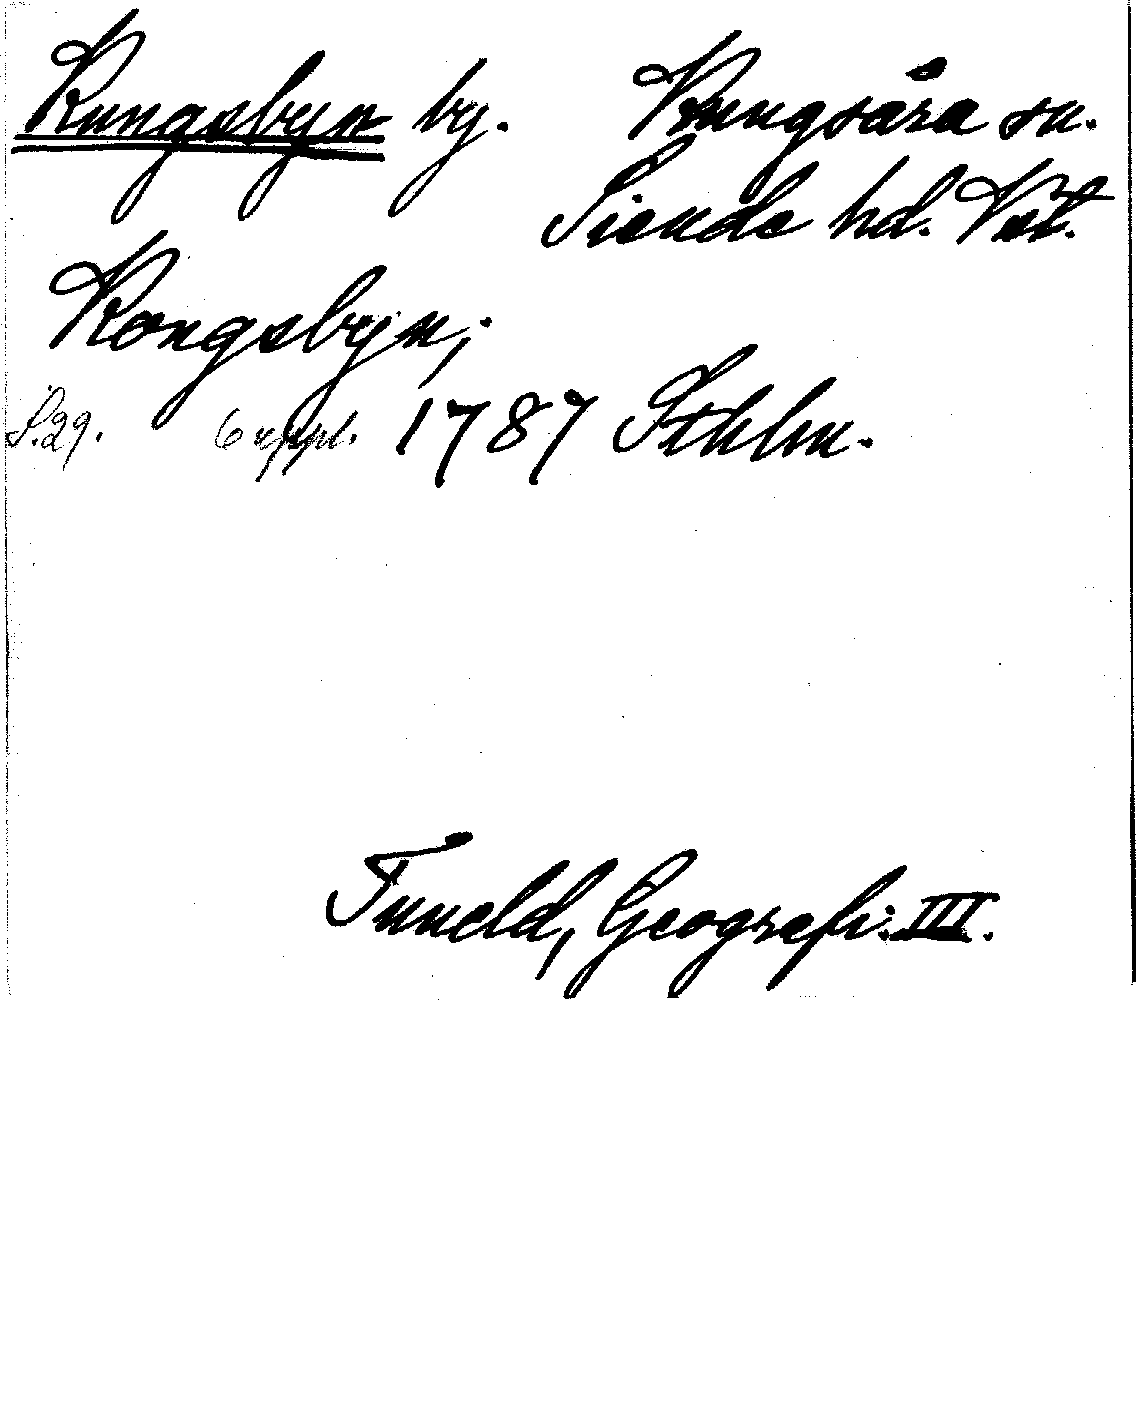 Kungsbyn by. Kungsåra sn.
Siende hd. Vstl.
Kongsbyn;
S. 29. 6 uppl. 1787 Sthlm.
Tuneld, Geografi. III.